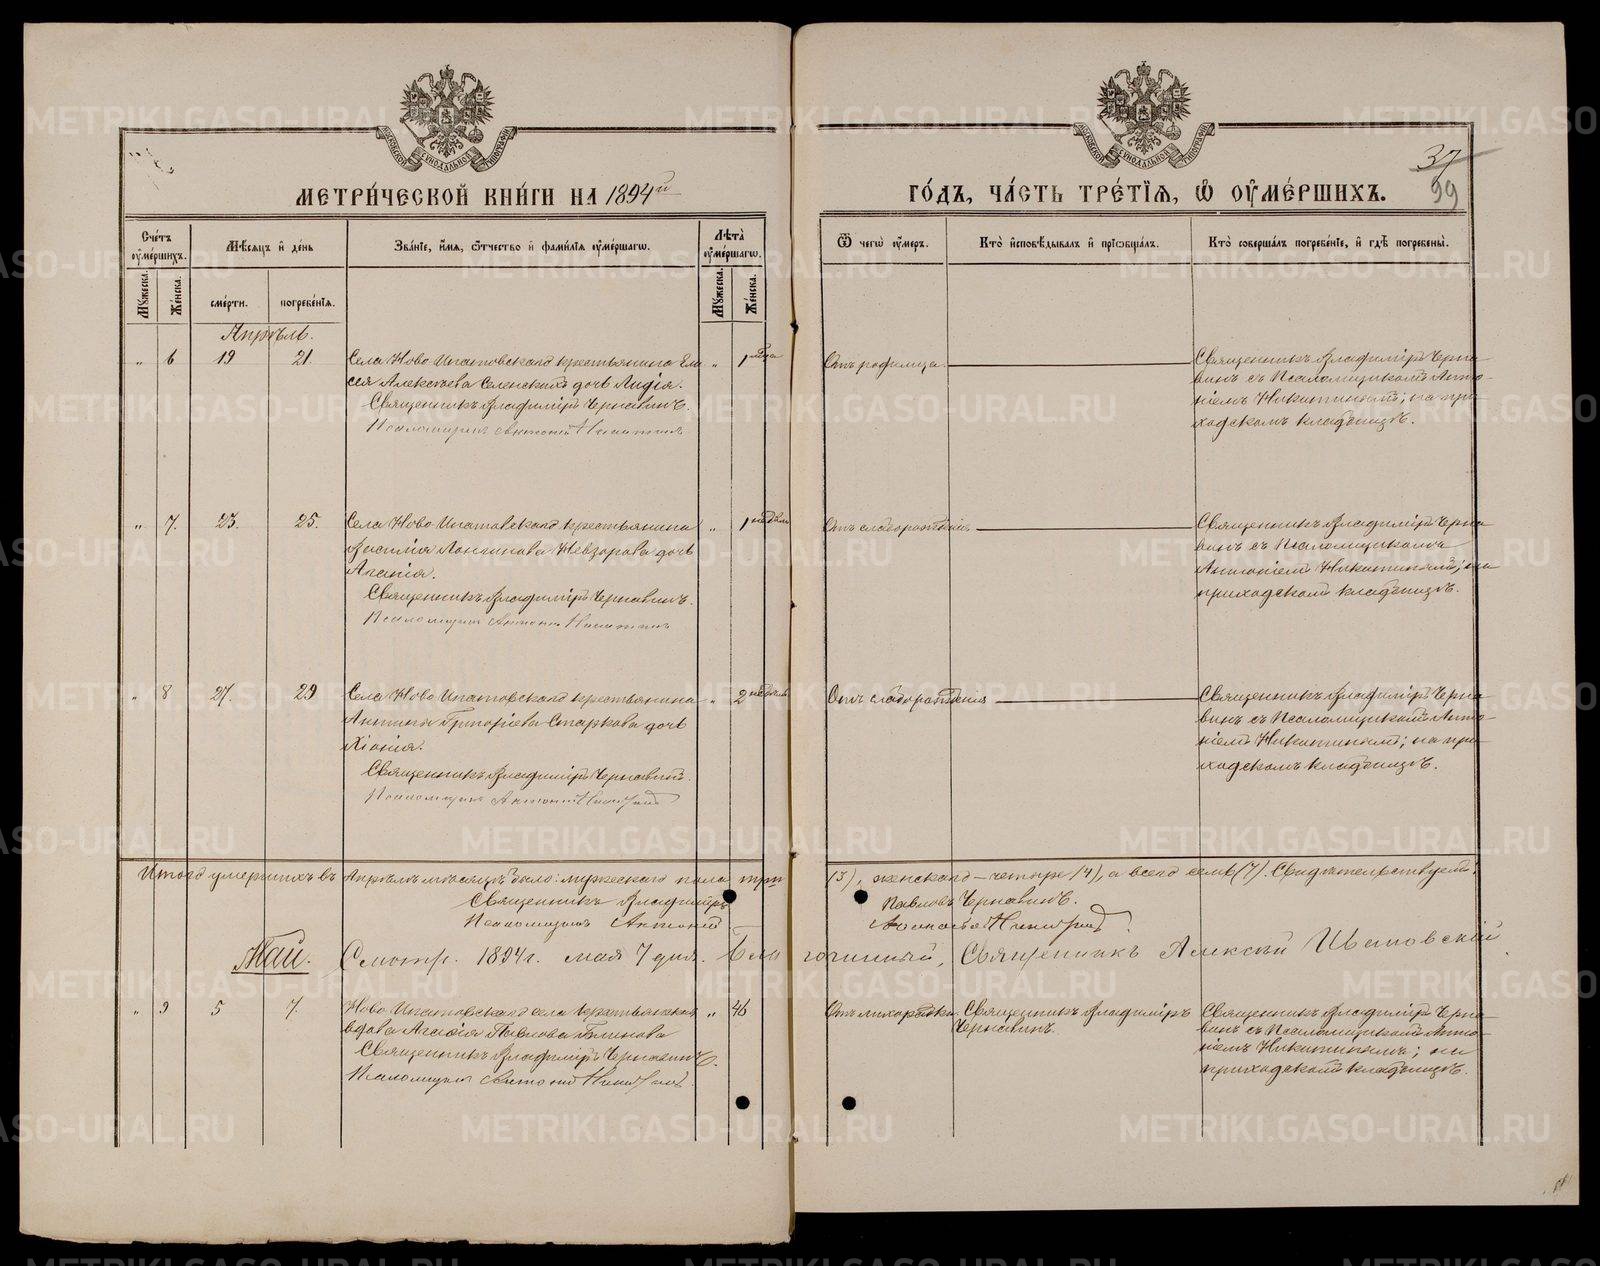 МЕТРИ́ЧЕСКОЙ КНИ́ГИ НА 1894й
ГО́ДЪ, ЧА́СТЬ ТРЕ́ТІѦ, Ѡ҆ ОУ҆МЕ́РШИХЪ.
37
99
Сче́тъ оу҆ме́ршихъ.
Мꙋ́жеска.
Же́нска.
Мѣ́сяцъ и҆ де́нь
сме́рти.
погребе́нїѧ.
Зва́нїе, и҆́мѧ, ѻ҆́тчество и҆ фами́лїѧ оу҆ме́ршагѡ.
Лѣ̑та̀ оу҆ме́ршагѡ.
Мꙋ́жеска.
Же́нска.
Ѿ чегѡ̀ оу҆́меръ.
Кто̀ и҆сповѣ́дывалъ и҆ прїѡбща́лъ.
Кто̀ соверша́лъ погребе́нїе, и҆ гдѣ̀ погребены̀.
Апрѣль.
" 6 19 21.
Села Ново Ипатовскаго крестьянина Ели
сея Алексѣева Селенскихъ дочь Лидія.
Священникъ Владиміръ Чернавинъ.
Псаломщикъ Антоній Никитинъ
" 1 мѣца
Отъ родимца.
Священникъ Владиміръ Черна-
винъ съ Псаломщикомъ Анто-
ніемъ Никитинымъ; на при-
ходскомъ кладбищѣ.
" 7. 23. 25.
Села Ново Ипатовскаго крестьянина
Василія Лонгинова Невзорова дочь
Агапія.
Священникъ Владиміръ Чернавинъ.
Псаломщикъ Антоній Никитинъ
" 1 недѣли
Отъ слаборожденія
Священникъ Владиміръ Черна-
винъ съ Псаломщикомъ
Антоніемъ Никитинымъ; на
приходскомъ кладбищѣ.
" 8 27. 29
Села Ново Ипатовскаго крестьянина
Антипы Григоріева Старкова дочь
Хіонія.
Священникъ Владиміръ Чернавинъ.
Псаломщикъ Антоній Никитинъ
" 2 недѣли
Отъ слаборожденія
Священникъ Владиміръ Черна-
винъ съ Псаломщикомъ Анто-
ніемъ Никитинымъ; на при-
ходскомъ кладбищѣ.
Итого умершихъ въ Апрѣлѣ мѣсяцѣ было: мужескаго пола три (3), женскаго – четыре (4), а всего семь (7). Свидѣтельствуемъ:
Священникъ Владиміръ Павловъ Чернавинъ.
Псаломщикъ Антоній Никитинъ.
Май.
Смотр. 1894 г. мая 7 дня. Благочинный, Священникъ Алексѣй Ивановскій
" 9 5 7.
Ново Ипатовскаго села крестьянская
вдова Агафія Павлова Блинова
Священникъ Владиміръ Чернавинъ.
Псаломщикъ Антоній Никитинъ.
" 46
Отъ лихорадки.
Священникъ Владиміръ
Чернавинъ.
Священникъ Владиміръ Черна-
винъ съ Псаломщикомъ Анто-
ніемъ Никитинымъ; на
приходскомъ кладбищѣ.
METRIKI.GASO-URAL.RU